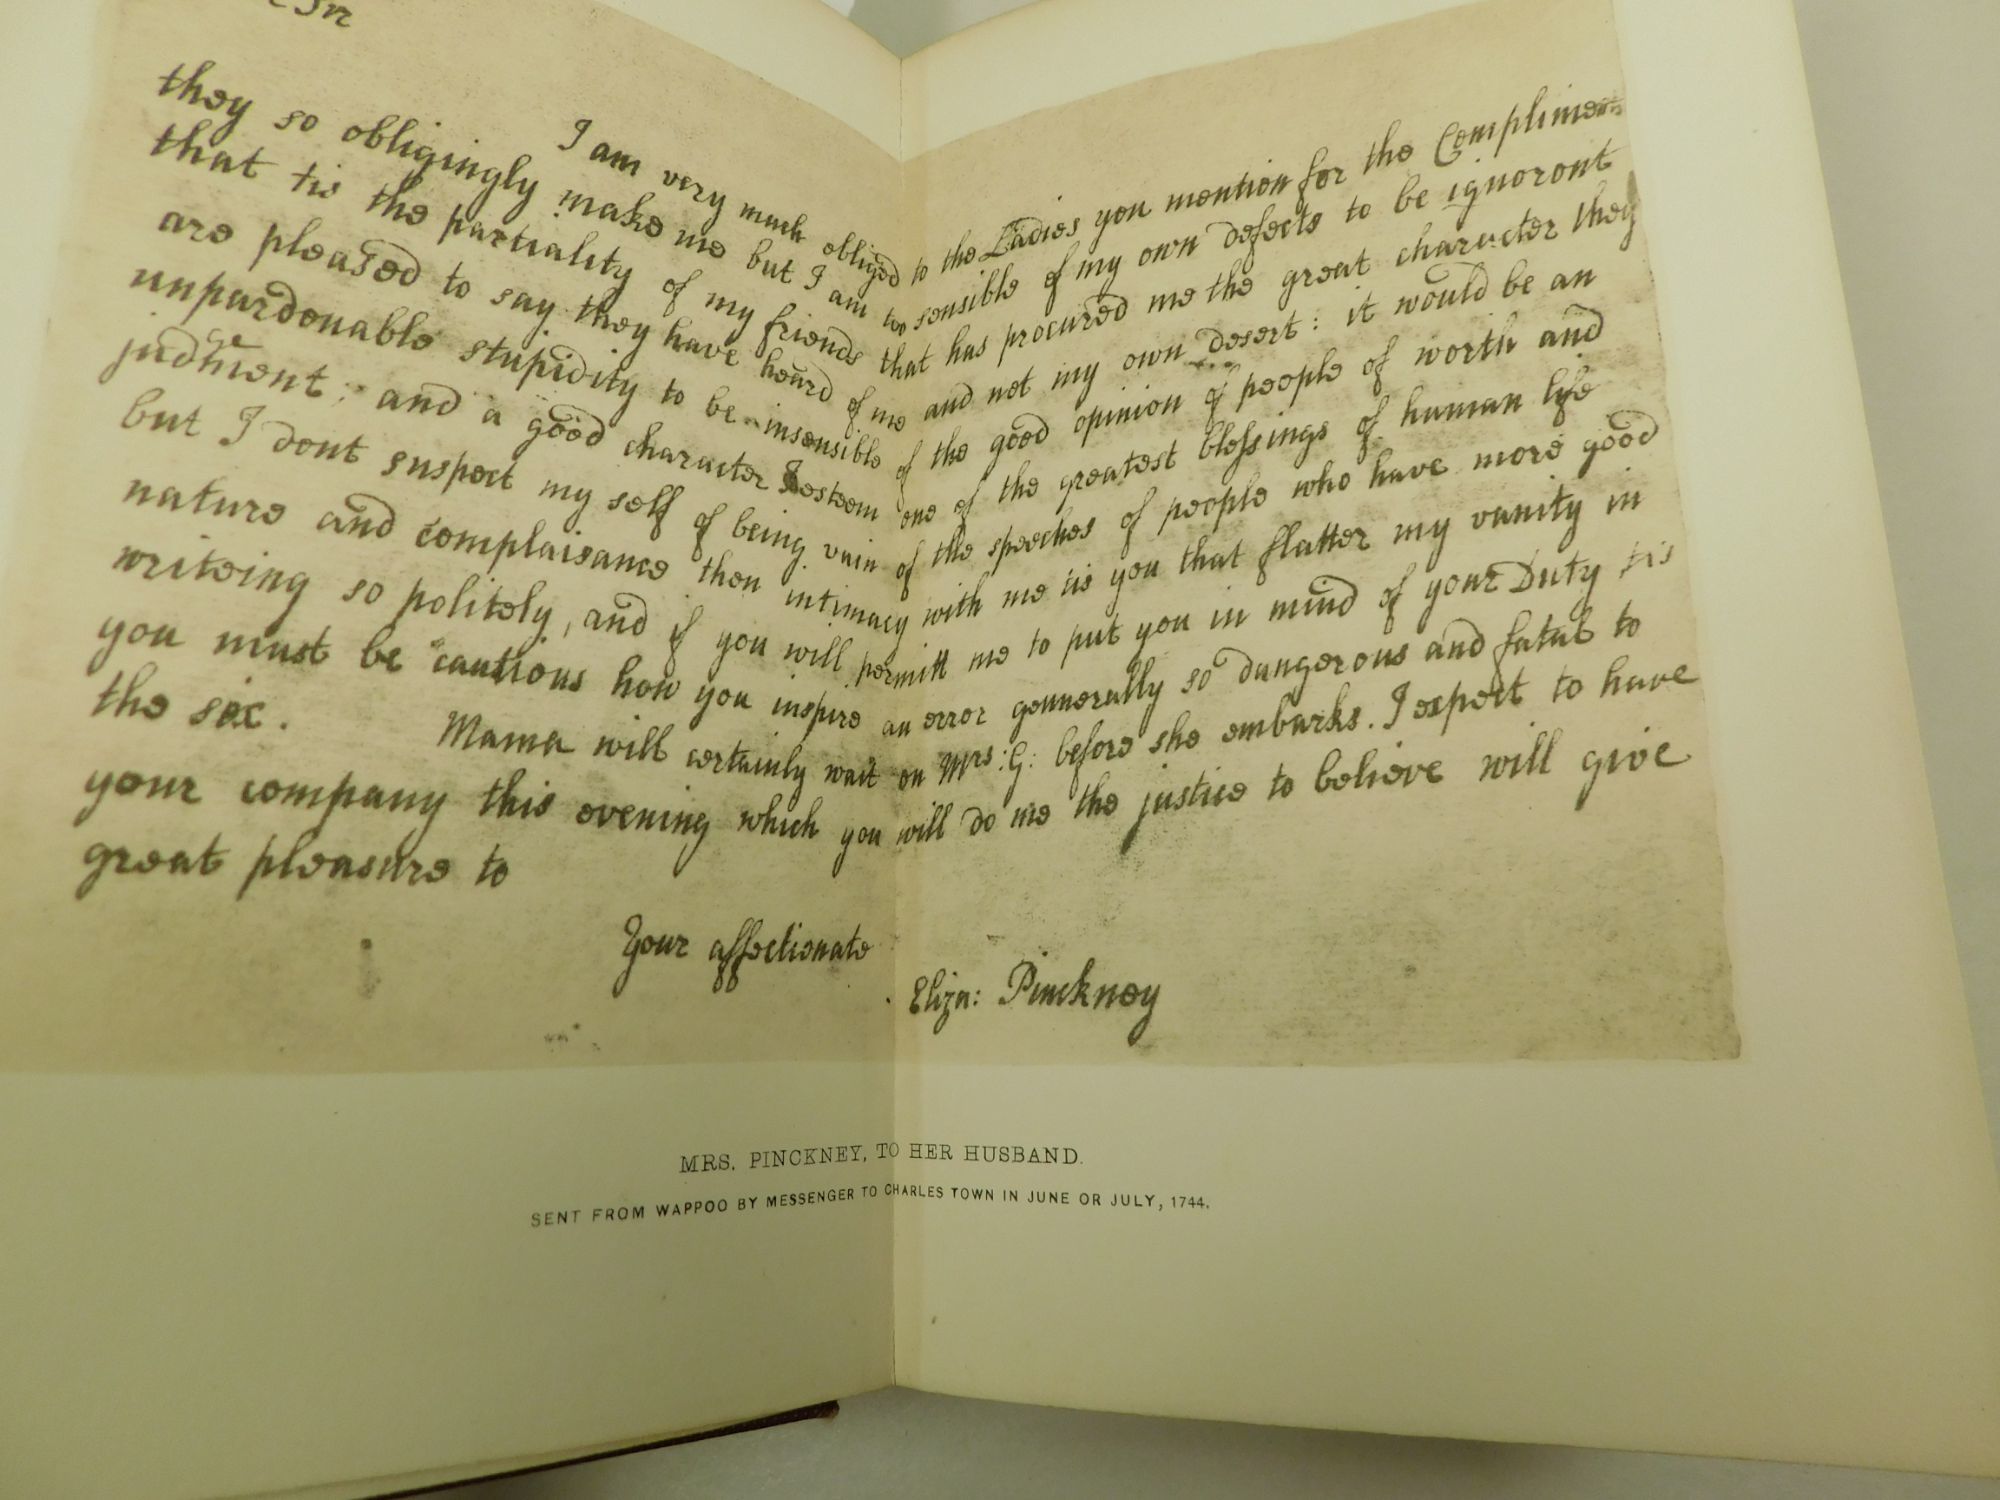 Sir
I am very much obliged to the Ladies you mention for the Compliments
they so obligingly make me but I am too sensible of my own defects to be ignoront
that tis the partiality of my friends that has procured me the great character they
are pleased to say they have heard of me and not my own desert: it would be an
unpardonable stupidity to be insensible of the good opinion of people of worth and
judgment; and a good character I esteem one of the greatest blessings of human life
but I dont suspect my self of being vain of the speeches of people who have more good
nature and complaisance then intimacy with me tis you that flatter my vanity in
writeing so politely, and if you will permitt me to put you in mind of your Duty tis
you must be cautious how you inspire an error gennerally so dangerous and fatal to
the sex. Mama will certainly wait on Mrs: G: before she embarks. I expect to have
your company this evening which you will do me the justice to believe will give
great pleasure to
Your affectionate
Eliza: Pinckney
MRS. PINCKNEY, TO HER HUSBAND.
SENT FROM WAPPOO BY MESSENGER TO CHARLES TOWN IN JUNE OR JULY, 1744.